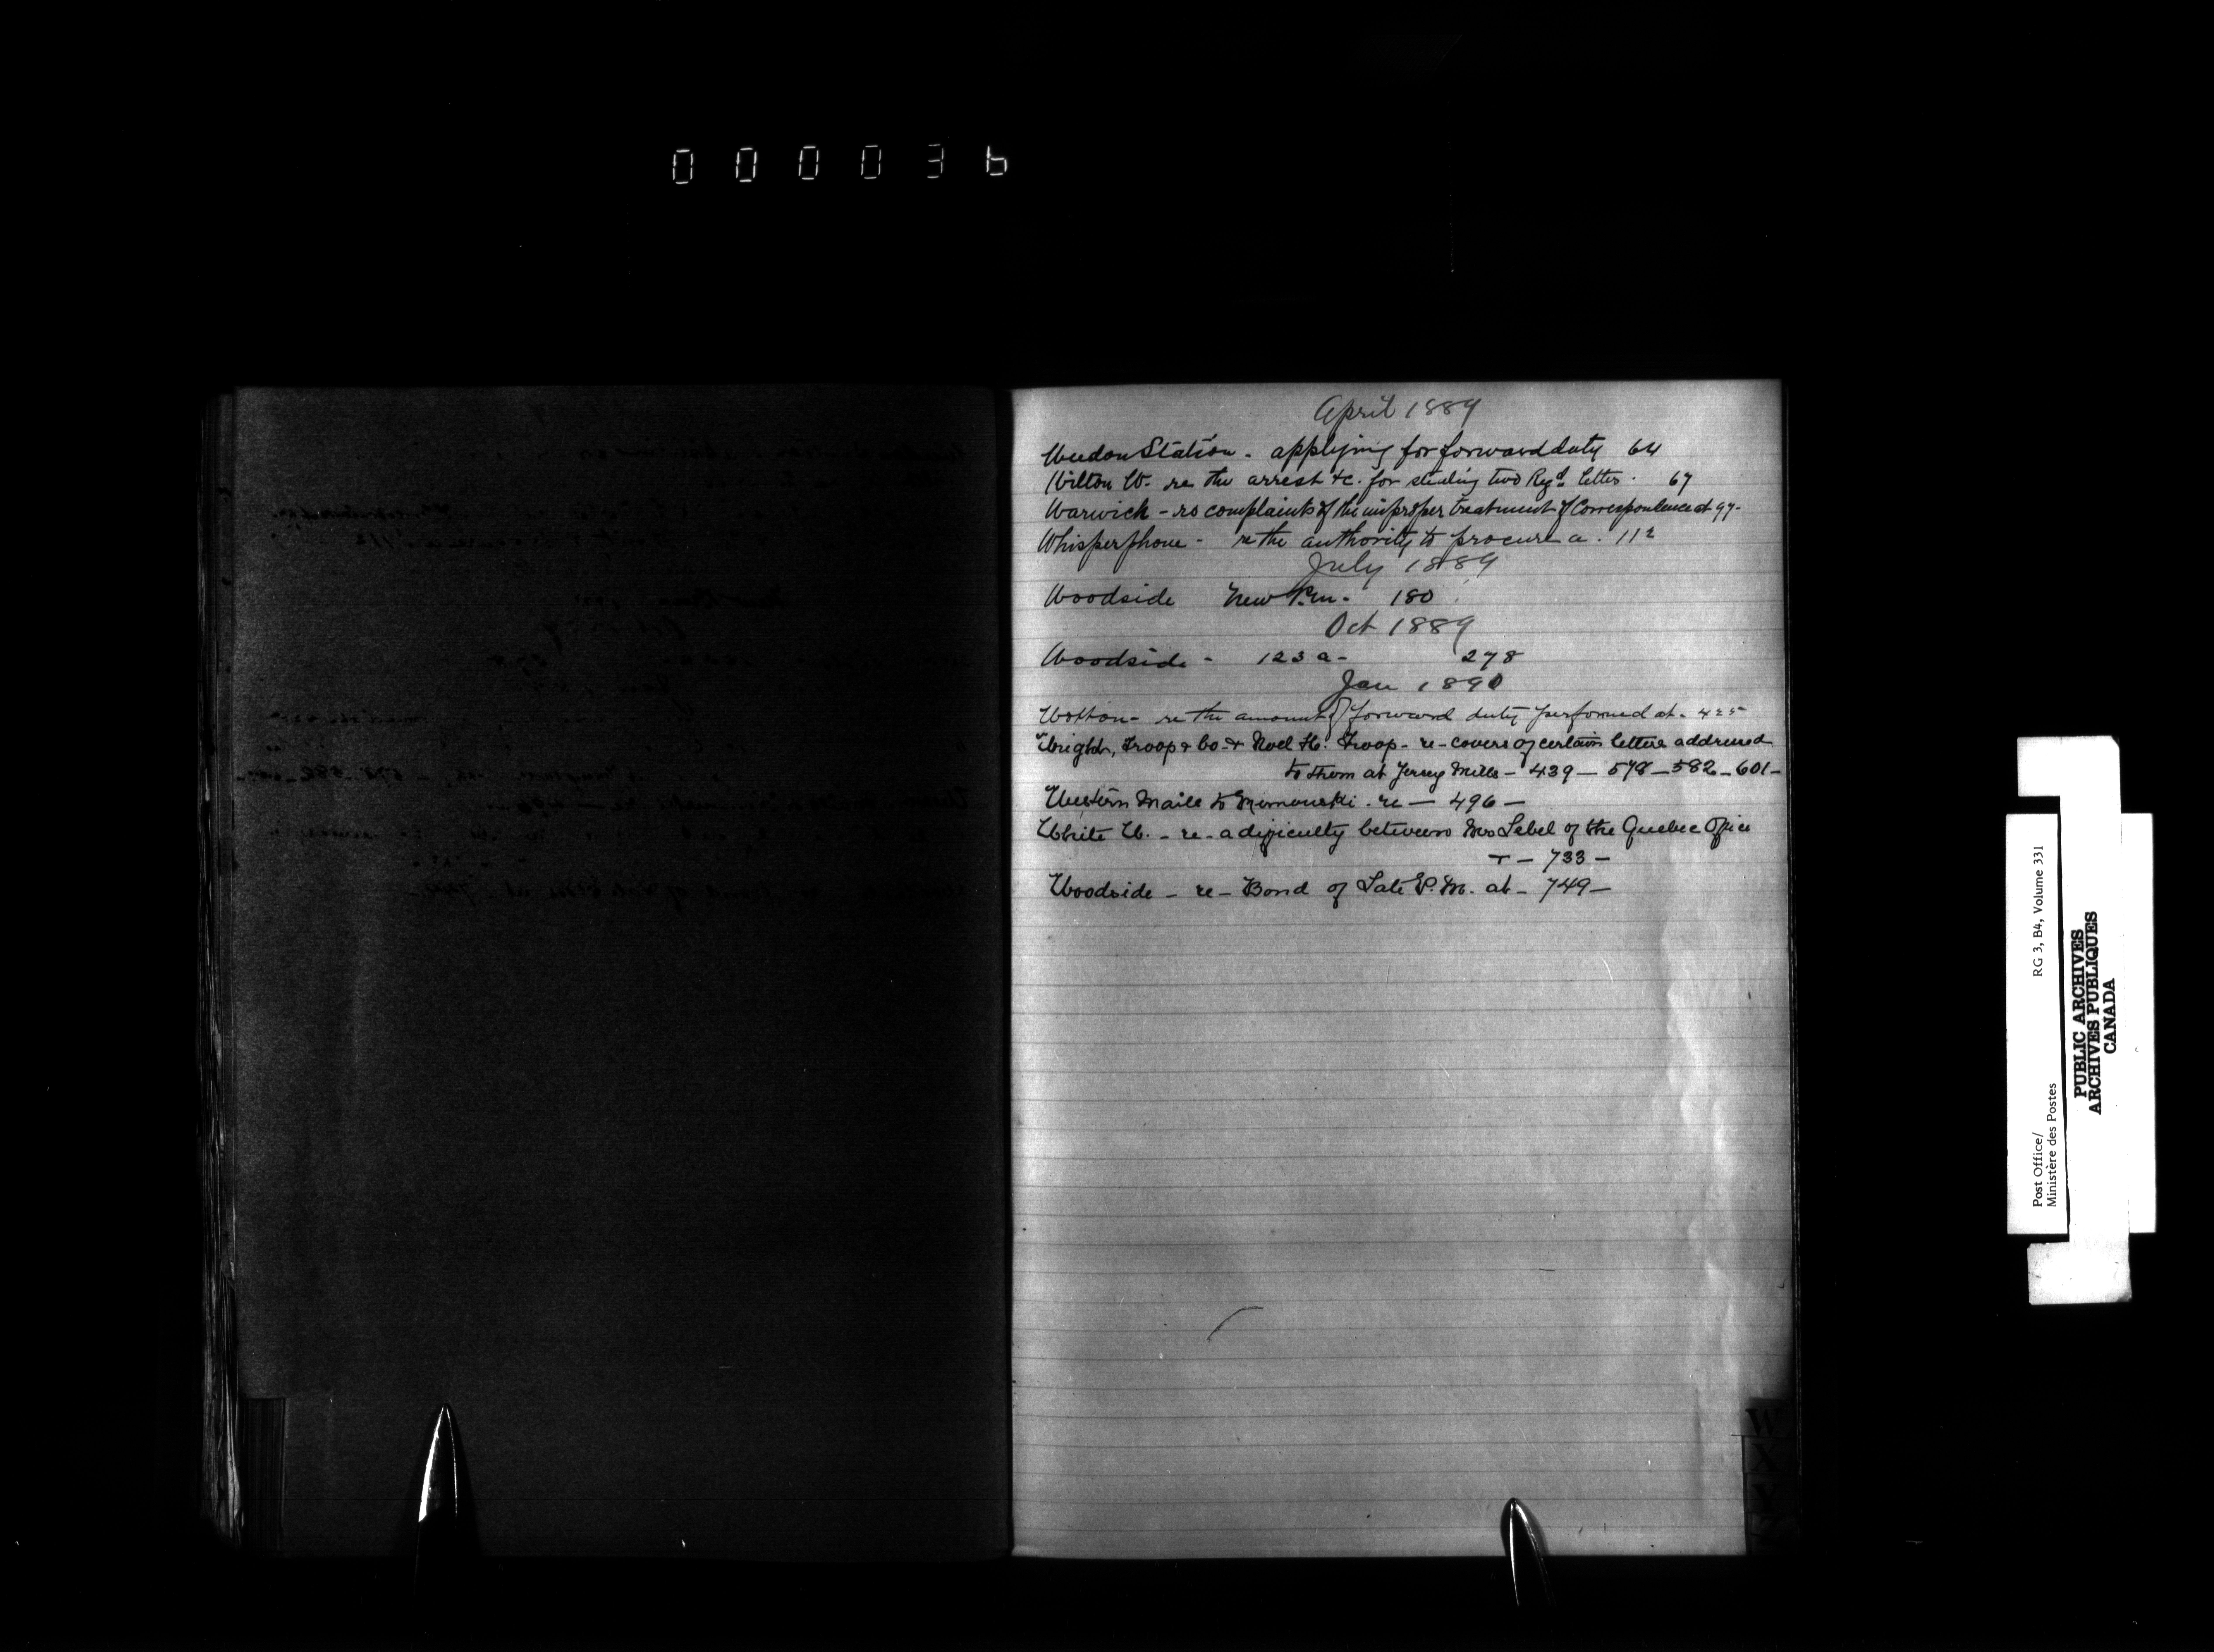 000036
April 1889
Weedon Station - applying for forward duty 64
Wilton W. re the arrest &c. for stealing two Regd. letters. 67
Warwick - re complaints of the improper treatment of Correspondence at 97-
Whisperphone - re the authority to procure a. 112
July 1889
Woodside New P.m. 180
Oct 1889
Woodside - 123 a - 278
Jan 1890
Wotton - re the amount of forward duty performed at - 425
Wright, Troop & Co. & Noel H. Troop - re - covers of certain letters addressed
to them at Jersey Mills - 439 - 578 - 582 - 601 -
Western Mails to Rimouski. re - 496 -
White W. - re - a difficulty between Mrs Lebel of the Quebec Office
- 733 -
Woodside - re - Bond of Late P.M. at - 749 -
W
X
Y
Z
Post Office/
Ministère des Postes
RG 3, B4, Volume 331
PUBLIC ARCHIVES
ARCHIVES PUBLIQUES
CANADA